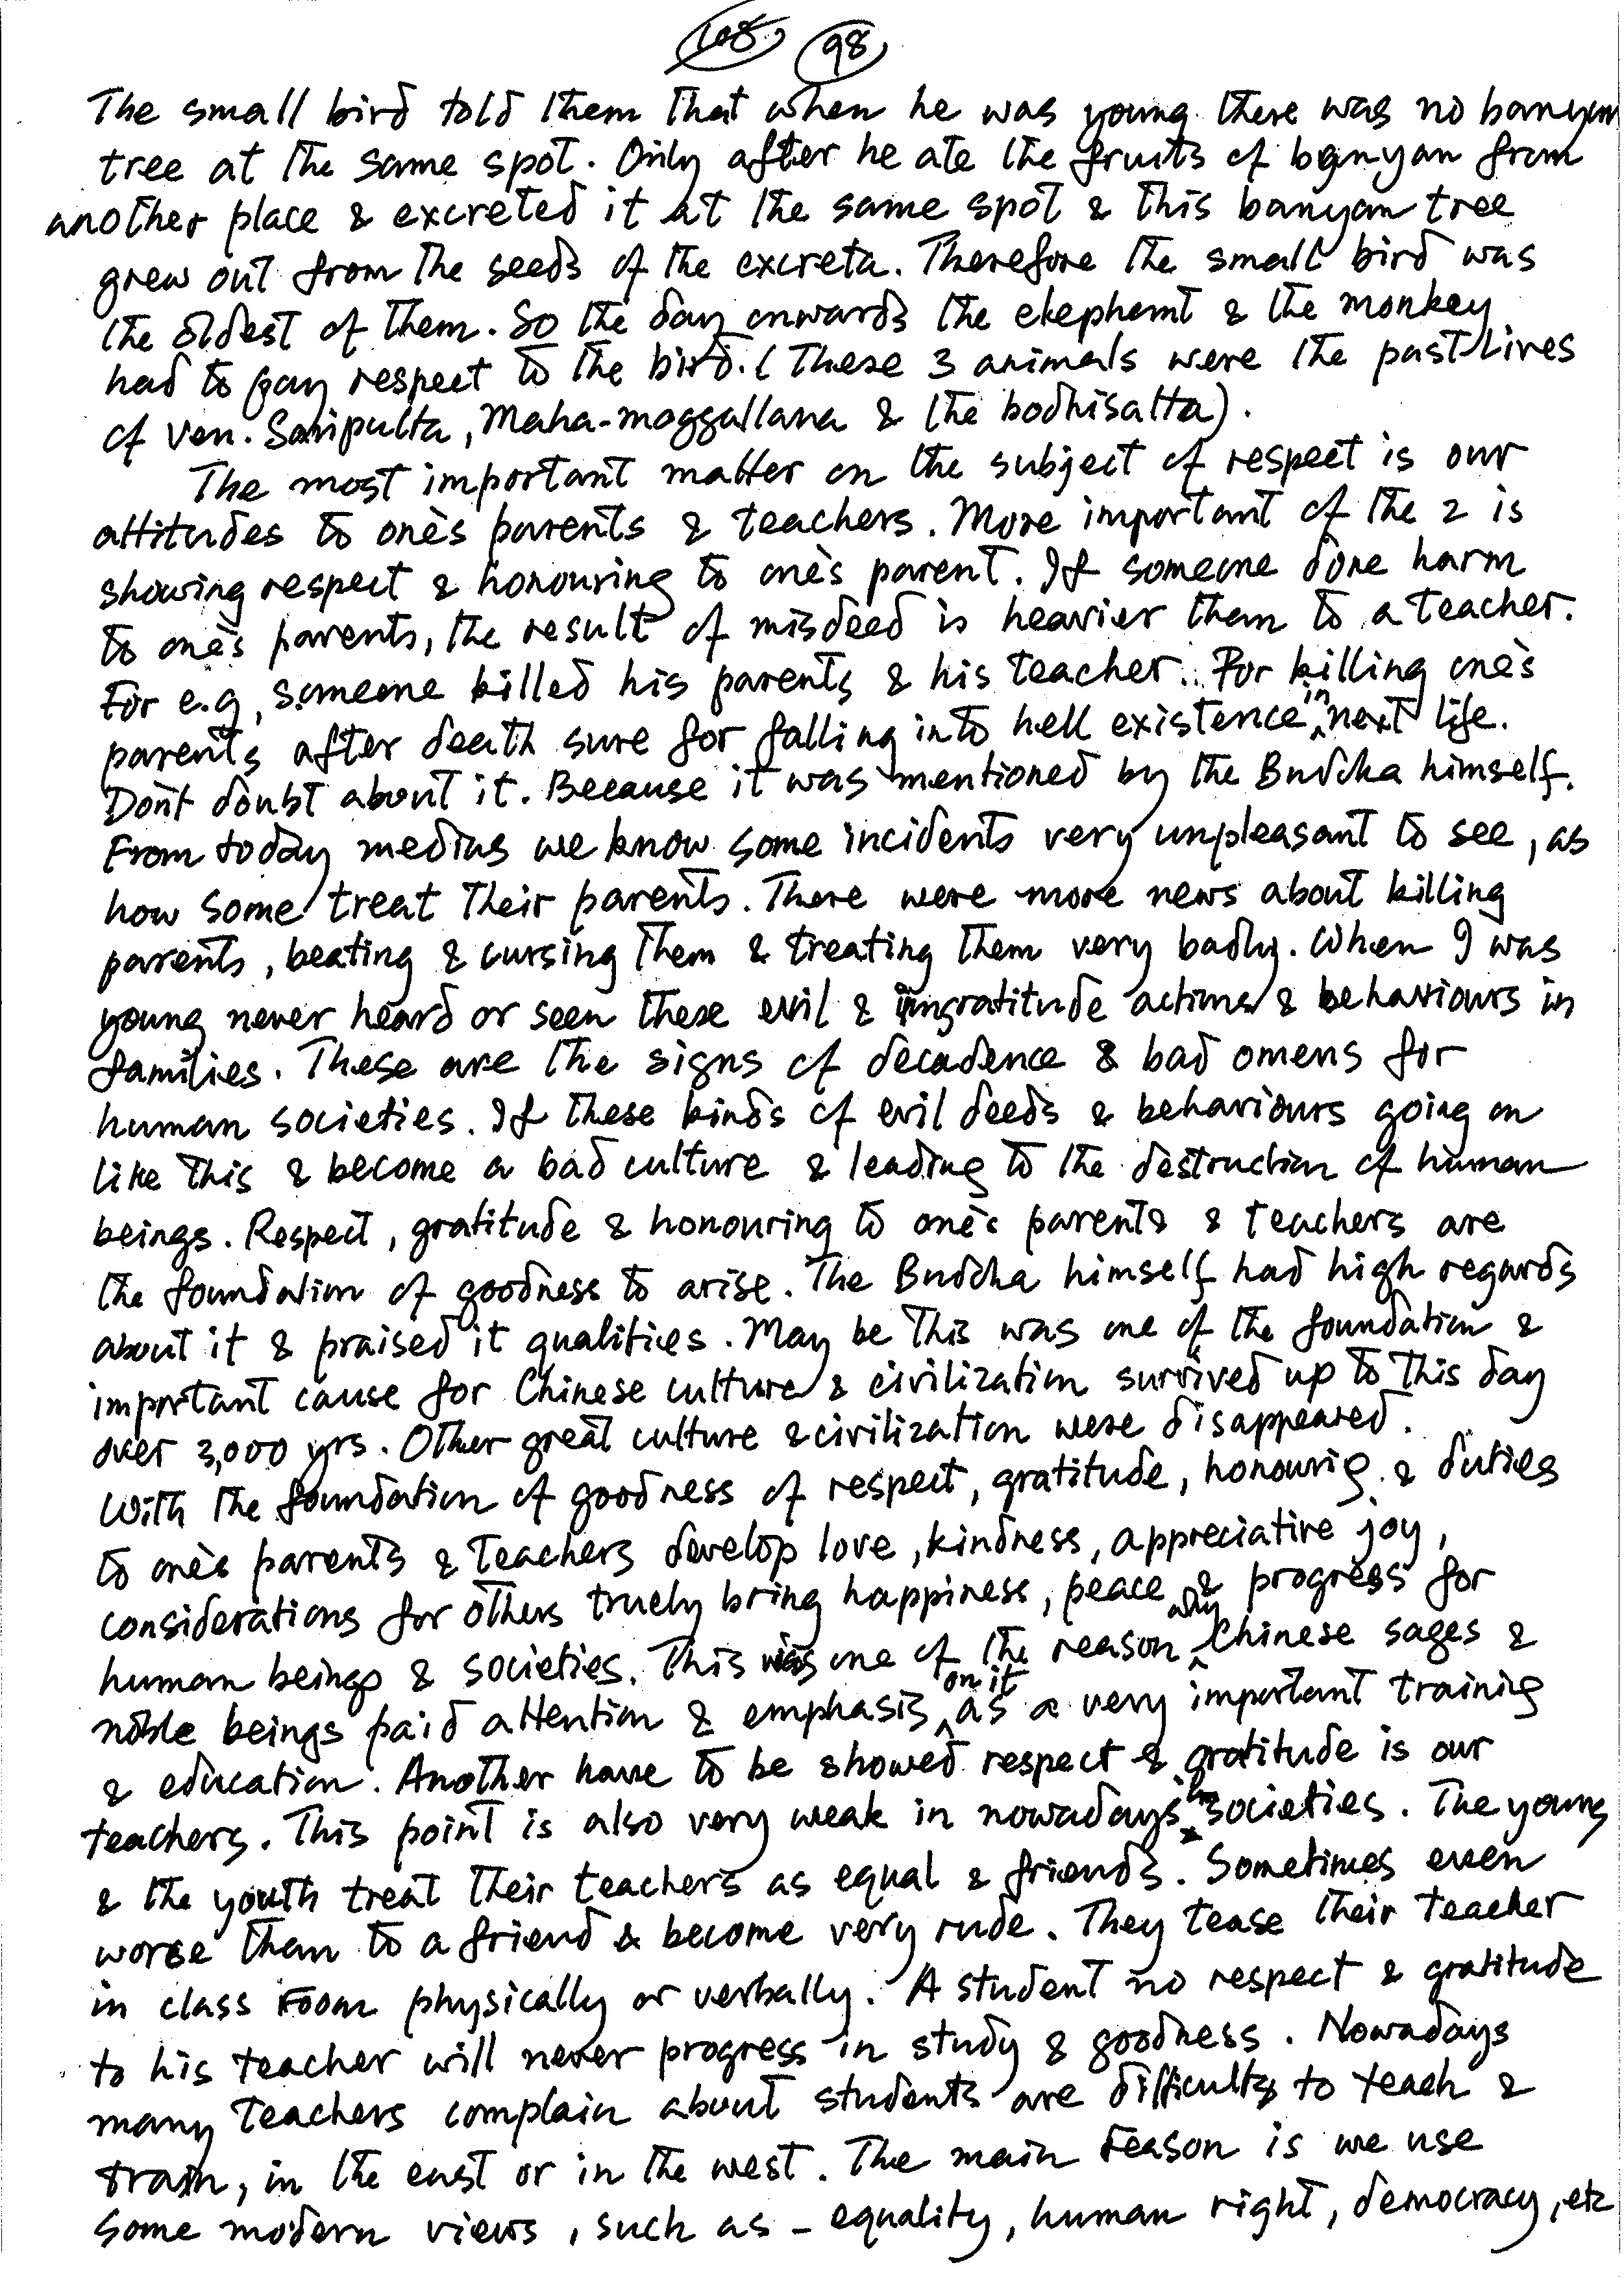 108 98
The small bird told them that when he was young there was no banyan
tree at the same spot. Only after he ate the fruits of banyan from
another place & excreted it at the same spot & this banyan tree
grew out from the seeds of the excreta. Therefore the small bird was
the oldest of them. So the day onwards the elephant & the monkey
had to pay respect to the bird. (These 3 animals were the past lives
of Ven. Sariputta, Maha-moggallana & the bodhisatta).
The most important matter on the subject of respect is our
attitudes to one's parents & teachers. More important of the 2 is
showing respect & honouring to one's parent. If someone done harm
to one's parents, the result of misdeed is heavier than to a teacher.
For e.g, someone killed his parents & his teacher. For killing one's
parents after death sure for falling into hell existence in next life.
Don't doubt about it. Because it was mentioned by the Buddha himself.
From today medias we know some incidents very unpleasant to see, as
how some treat their parents. There were more news about killing
parents, beating & cursing them & treating them very badly. When I was
young never heard or seen these evil & ingratitude actions & behaviours in
families. These are the signs of decadence & bad omens for
human societies. If these kinds of evil deeds & behaviours going on
like this & become a bad culture & leading to the destruction of human
beings. Respect, gratitude & honouring to one's parents & teachers are
the foundation of goodness to arise. The Buddha himself had high regards
about it & praised it qualities. May be this was one of the foundation &
important cause for Chinese culture & civilization survived up to this day
over 3,000 yrs. Other great culture & civilization were disappeared.
With the foundation of goodness of respect, gratitude, honouring & duties
to one's parents & teachers develop love, kindness, appreciative joy,
considerations for others truely bring happiness, peace & progress for
human beings & societies. This was one of the reason why Chinese sages &
noble beings paid attention & emphasis on it as a very important training
& education. Another have to be showed respect & gratitude is our
teachers. This point is also very weak in nowadays societies. The young
& the youth treat their teachers as equal & friends. Sometimes even
worse than to a friend & become very rude. They tease their teacher
in class room physically or verbally. A student no respect & gratitude
to his teacher will never progress in study & goodness. Nowadays
many teachers complain about students are difficulty to teach &
train, in the east or in the west. The main reason is we use
some modern views, such as – equality, human right, democracy, etc